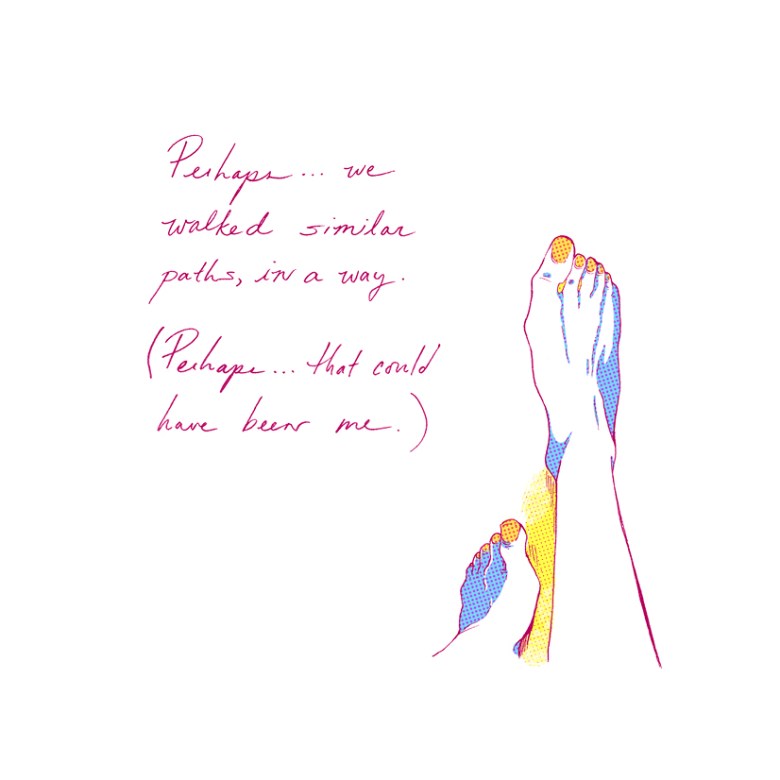 Perhaps... we
walked similar
paths, in a way.
(Perhaps... that could
have been me.)